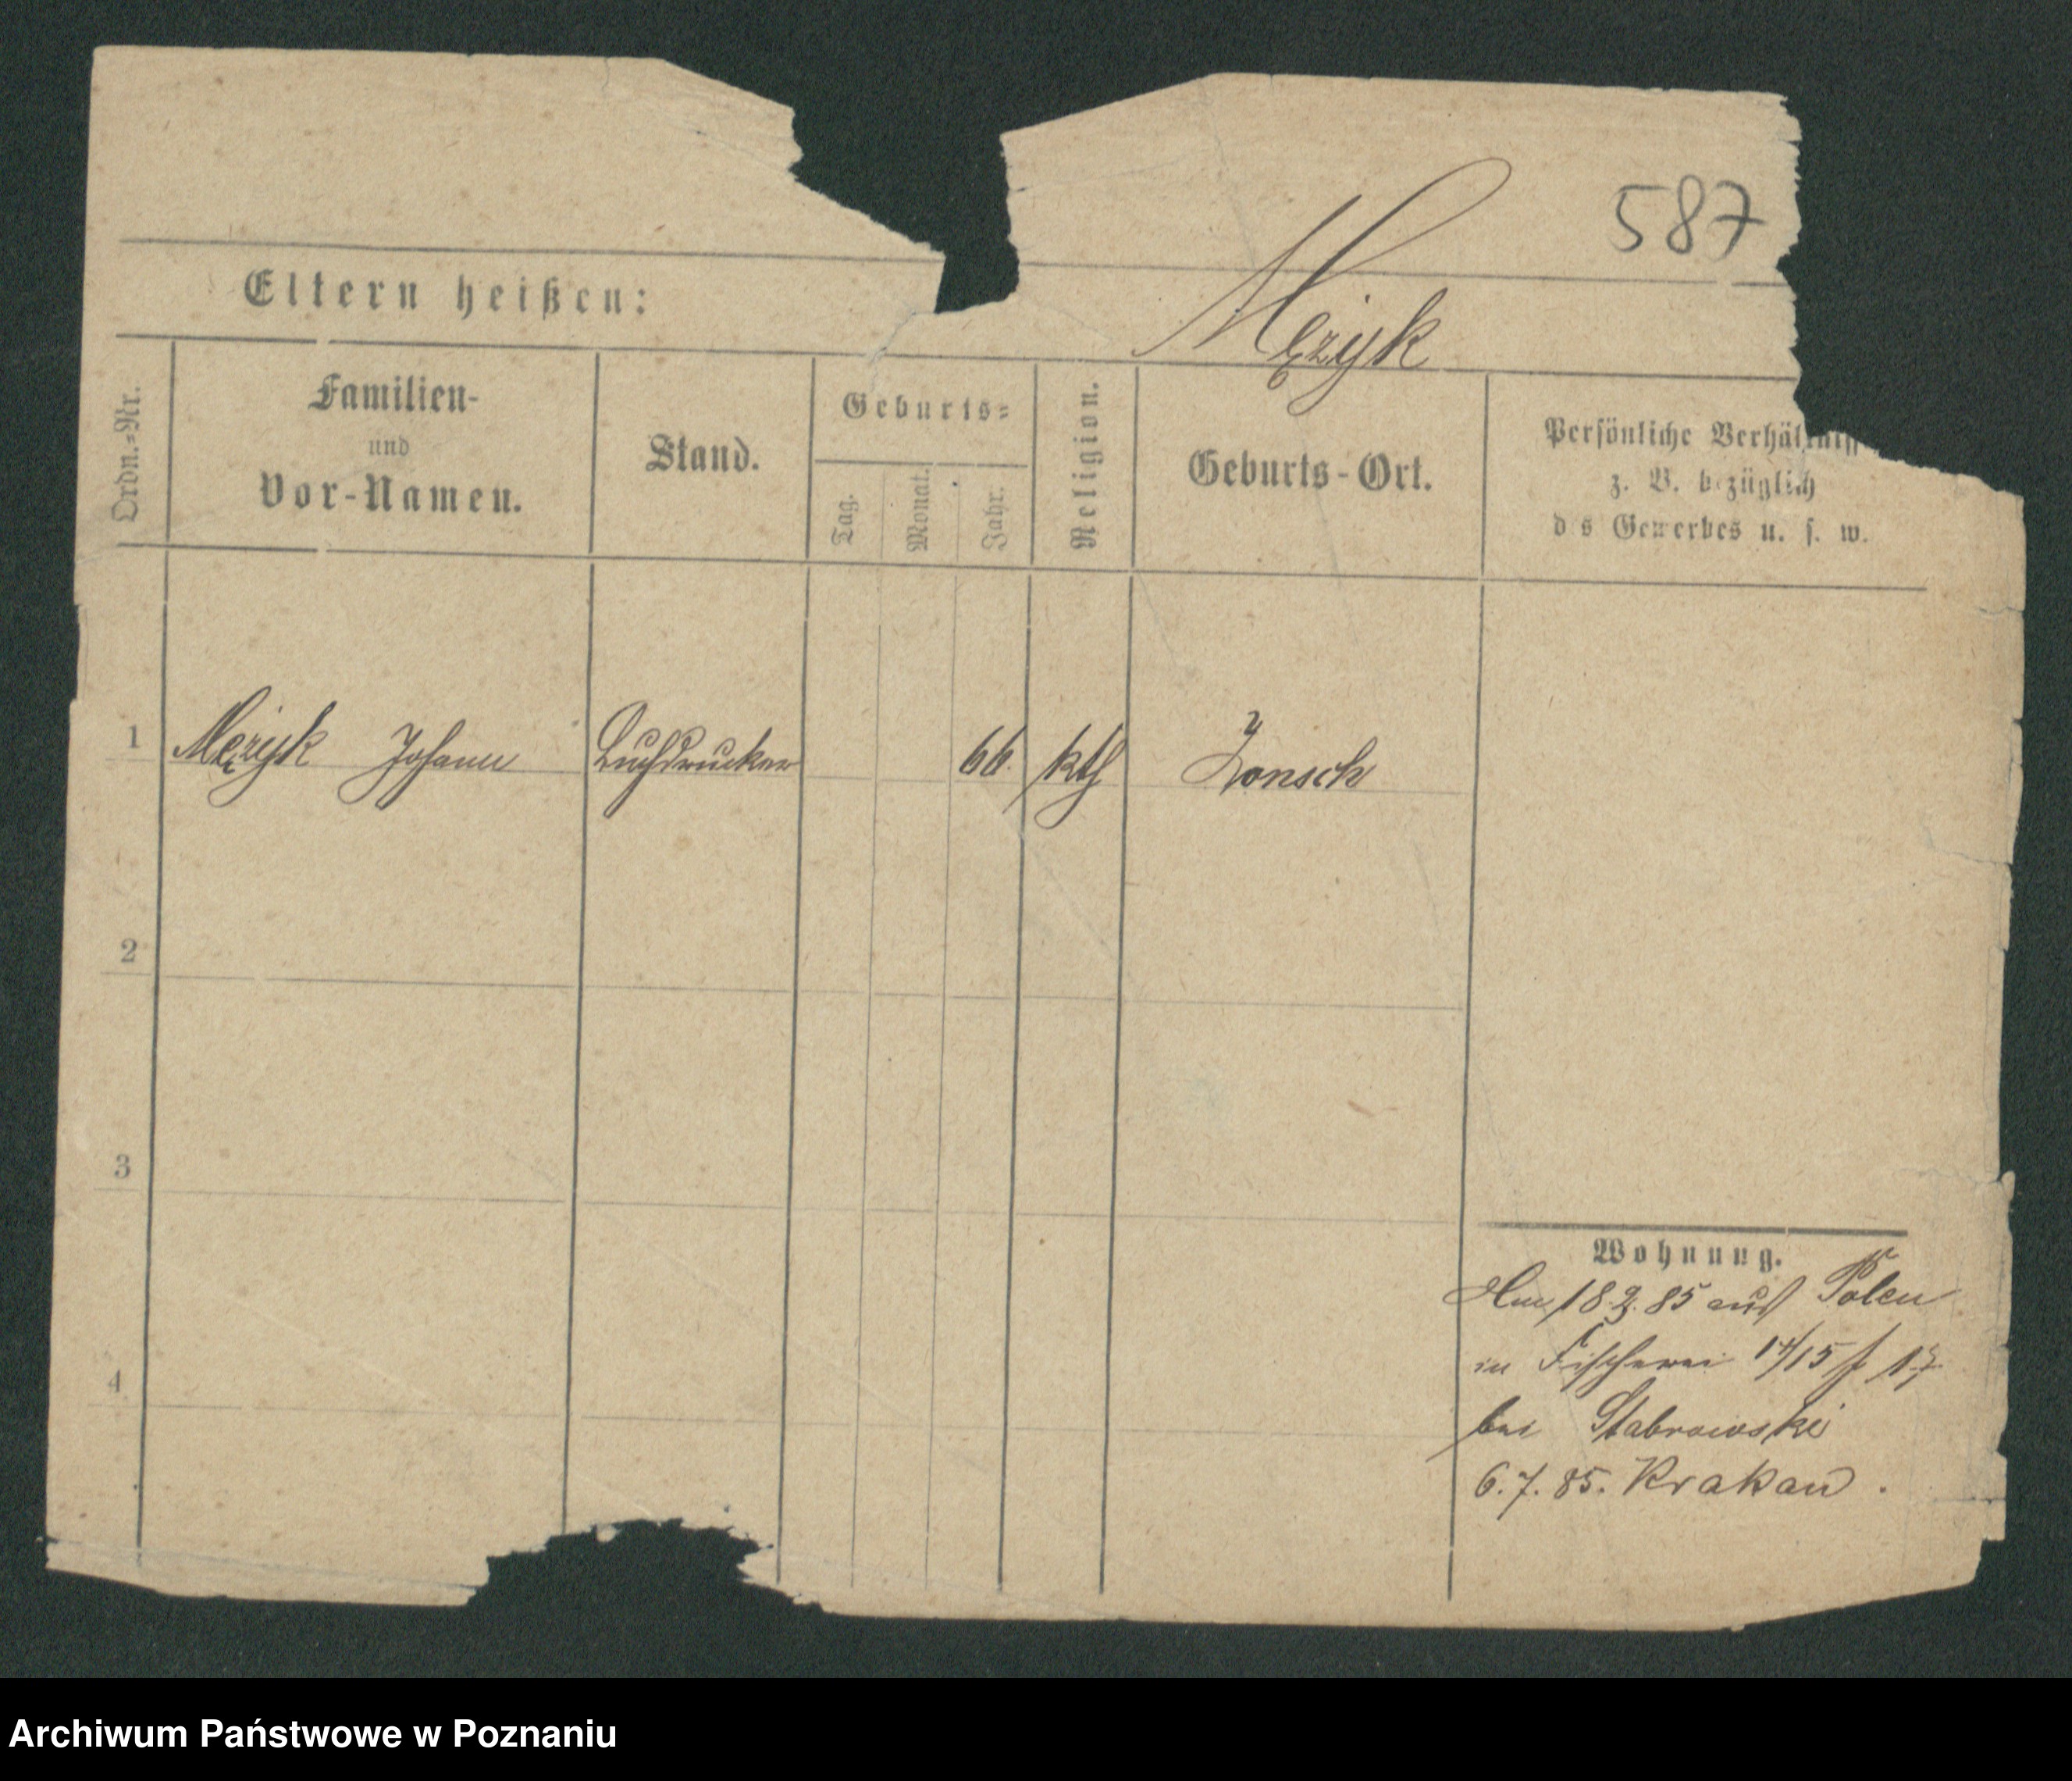 587
Mężyk
Eltern heißen:
Ordn.-Nr.
Familien-
und
Vor-Namen.
Stand.
Geburts-
Tag.
Monat.
Jahr.
Religion.
Geburts-Ort.
Persönliche
z. B. bezüglich
des Gewerbes u. s. w.
1 Mężyk Johann Buchdrucker 66. kth
2
3
4
Wohnung.
85 aus Polen
in Fischerei 14/15
bei Stabrowski
6.7.85. Krakau.
Archiwum Państwowe w Poznaniu